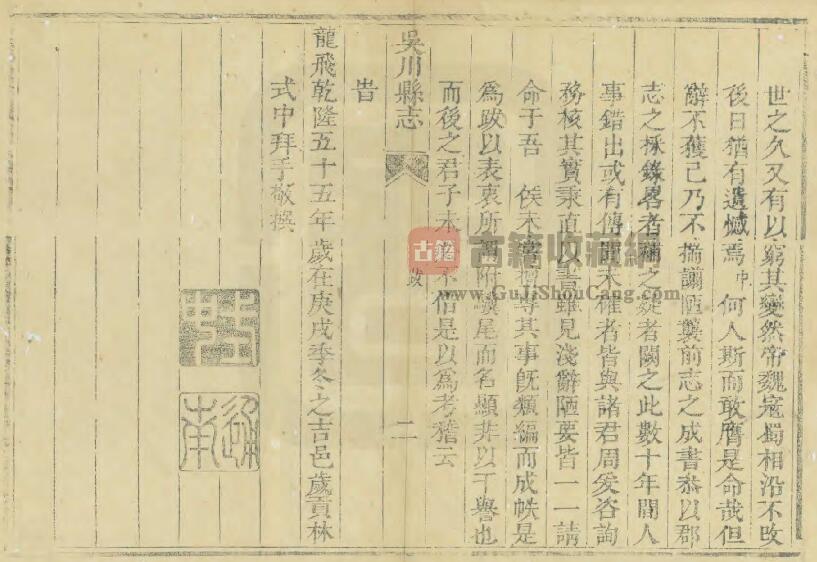 世之久又有以窮其變然帝魏寇蜀相沿不改
後日猶有遺憾焉中何人斯而敢膺是命哉但
辭不獲已乃不揣譾陋襲前志之成書恭以郡
志之採錄畧者補之疑者闕之此數十年間人
事錯出或有傳聞未確者皆與諸君周爰咨詢
務核其實秉直以書雖見淺辭陋要皆一一請
命于吾 侯未嘗 專其事旣類編而成帙是
為跋以表衷所 附驥尾而名顯非以干譽也
而後之君子未 不信是以為考稽云
吳川縣志
跋
二
旹
龍飛乾隆五十五年歲在庚戌季冬之吉邑歲貢林
式中拜手敬撰
古籍
古籍收藏網
www.GuJiShouCang.com